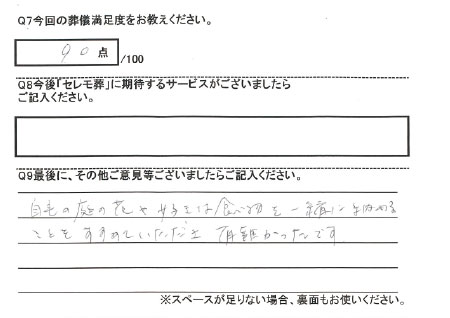 Q7今回の葬儀満足度をお教えください。
90 点 /100
Q8今後「セレモ葬」に期待するサービスがございましたら
ご記入ください。
Q9最後に、その他ご意見等ございましたらご記入ください。
自宅の庭の花や 食べ物を一緒に納める
こともすすめていただき 有難かったです
※スペースが足りない場合、裏面もお使いください。